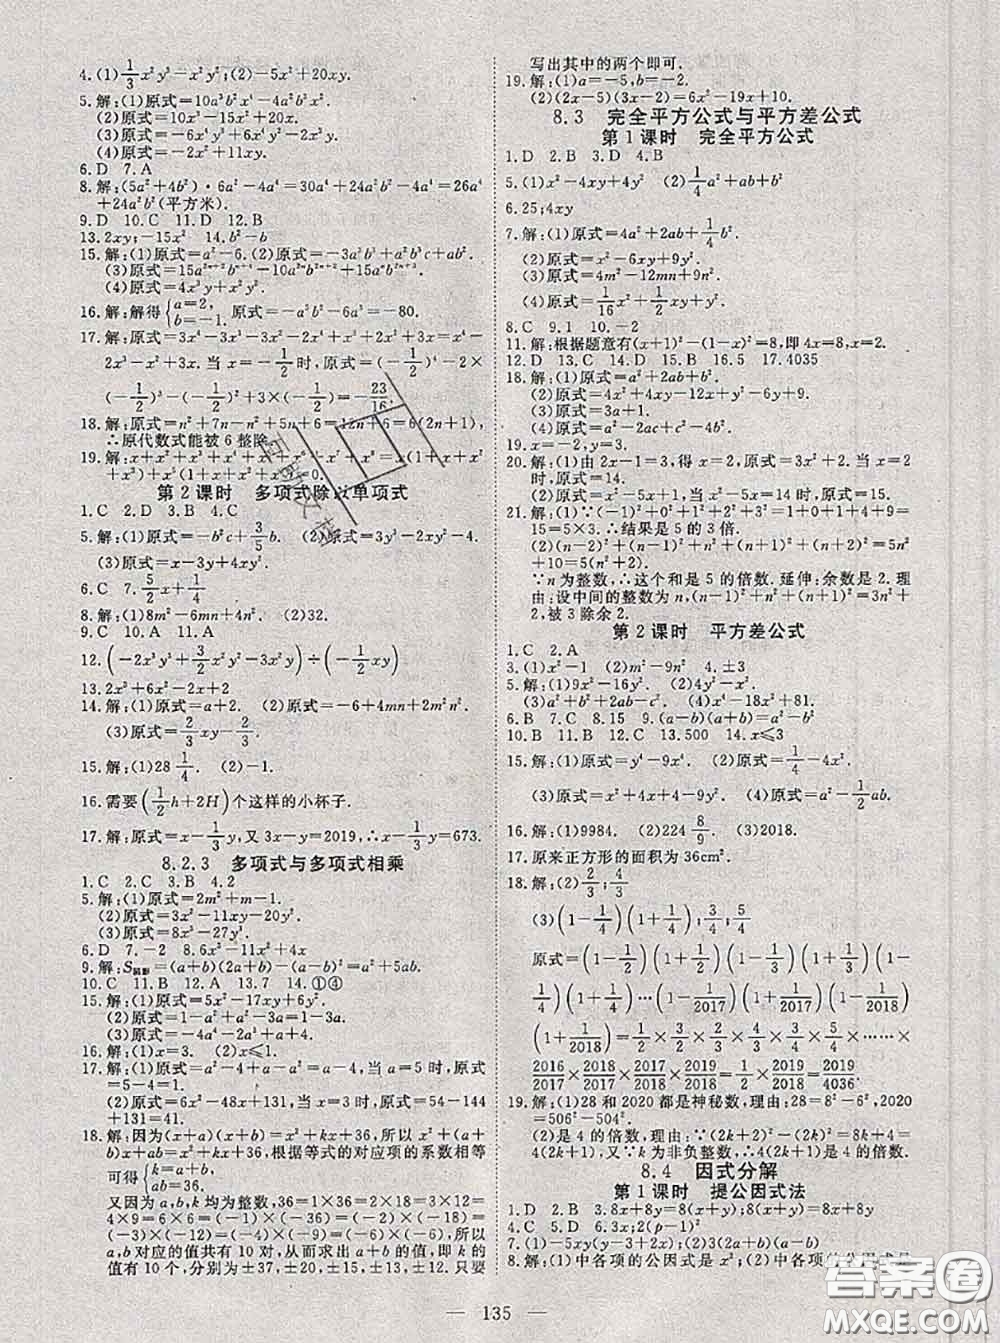 4.(1)1/3x²y³-x²y²;(2)-5x²+20xy.
5.解:(1)原式=10a³b²-8a²b².
(2)原式=10x³-15x².
(3)原式=-4x³y³+6x³y²-2x²y.
(4)原式=-2x²+11xy.
6.D 7.A
8.解:(5a²+4b²)·6a²-4a⁴=30a⁴+24a²b²-4a⁴=26a⁴
+24a²b²(平方米).
9.D 10.C 11.D 12.B
13.2xy;-15x² 14.b²-b
16.解:解得{a=2, b=-1. 原式=-a⁵b-6a³=-80.
17.解:原式=3x⁴-3x³-3x²-2x⁴+3x³+3x=x⁴-
2x²+3x. 当x=-1/2时,原式=(-1/2)⁴-2×
(-1/2)²+3×(-1/2)=-23/16.
18.解:原式=n²+7n-n²+5n+6=12n+6=6(2n+1),
∴原代数式能被6整除.
第2课时 多项式除以单项式
1.C 2.D 3.B 4.C
5.解:(1)原式=-b²c+3/5b. (2)原式=3y³-2xy²-4.
(3)原式=x-3y.
6.C 7.5/2x+1/4
8.解:(1)8m²-6mn+4n². (2)32.
9.C 10.A 11.A
12.(-2x³y³+3/2x²y²-3x²y)÷(-1/2xy)
13.2x³+6x²-2x+2
14.解:(1)原式=a+2. (2)原式=-6+4mn+2m²n².
(3)原式=2/3xy-2/3.
15.解:(1)28 1/4. (2)-1.
16.需要(1/2h+2H)个这样的小杯子.
17.解:原式=x-1/3y,又3x-y=2019,∴x-1/3y=673.
8.2.3 多项式与多项式相乘
1.C 2.C 3.B 4.2
5.解:(1)原式=2m²+m-1.
(2)原式=3x²-11xy-20y².
(3)原式=8x³-27y³.
6.D 7.-2 8.6x³-11x²+4x
9.解:S阴影=(a+b)(2a+b)-(a-b)·2a=b²+5ab.
10.C 11.B 12.A 13.7 14.①④
15.解:(1)原式=5x²-17xy+6y².
(2)原式=1-a²+a²-a=1-a.
(3)原式=-4a⁴-2a³+a+4.
16.解:(1)x=3. (2)x≤1.
17.解:(1)原式=a²-4+a-a²=a-4,当a=5时,原式
=5-4=1.
(2)原式=6x²-48x+131,当x=3时,原式=54-144
+131=41.
18.解:因为(x+a)(x+b)=x²+kx+36,所以x²+(a+
b)x+ab=x²+kx+36,根据等式的对应项的系数相等
可得{k=a+b, ab=36.
又因为a,b,k均为整数,36=1×36=2×18=3×12=
4×9=6×6=(-1)×(-36)=(-2)×(-18)=
(-3)×(-12)=(-4)×(-9)=(-6)×(-6),所以
a,b对应的值共有10对,从而求出a+b的值,即k的
值有10个,分别为±37,±20,±15,±13,±12.只要
写出其中的两个即可.
19.解:(1)a=-5,b=-2.
(2)(2x-5)(3x-2)=6x²-19x+10.
8.3 完全平方公式与平方差公式
第1课时 完全平方公式
1.D 2.B 3.D 4.B
5.(1)x²-4xy+4y² (2)1/4a²+ab+b²
6.25;4xy
7.解:(1)原式=4a²+2ab+1/4b².
(2)原式=x²-6xy+9y².
(3)原式=4m²-12mn+9n².
(4)原式=1/16x²+1/2xy+y².
8.C 9.1 10.-2
11.解:根据题意有(x+1)²-(1-x)²=8,即4x=8,x=2.
12.D 13.C 14.D 15.B 16.5 17.4035
18.解:(1)原式=a²+2ab+b².
(2)原式=4x²+4xy-12x+y²-6y+9.
(3)原式=3a+1.
(4)原式=-6ab.
19.x=-3.
20.解:(1)由2x-1=3,得x=2,原式=3x²-5=7.
(2)原式=x²-5x+1,当x=3时,原式=-5.
21.解:(1)∵(-1)²+0²+1²+2²+3²=1+0+1+4+9=
15=5×3.∴结果是5的3倍.
(2)(n-2)²+(n-1)²+n²+(n+1)²+(n+2)²=5n²
+10=5(n²+2).
∵n为整数,∴这个和是5的倍数. 延伸:余数是2. 理
由:设中间的整数为n,(n-1)²+n²+(n+1)²=3n²+
2,被3除余2.
第2课时 平方差公式
1.C 2.A
3.(1)x²-1 (2)m²-9n² 4.±3
5.解:(1)9x²-16y². (2)4y²-x².
(3)a²+b²+2ab-c². (4)x⁴-18x²+81.
6.B 7.C 8.15 9.(a-b)(a+b)=a²-b²
10.B 11.B 12.100 13.500 14.x≤3
15.解:(1)原式=y⁴-9x⁴. (2)原式=1/4-4x².
(3)原式=5y²-2xy. (4)原式=a²-1/2ab.
16.解:(1)9984. (2)224 8/9. (3)2018.
17.原来正方形的面积为36cm².
18.解:(2)2/3;4/3
(3)(1-1/4)(1+1/4);3/4;5/4
原式=(1-1/2)(1+1/2)(1-1/3)(1+1/3)(1-
1/4)(1+1/4)…(1-1/2017)(1+1/2017)(1-1/2018)
(1+1/2018)=1/2×3/2×2/3×4/3×3/4×5/4×…×
2016/2017×2018/2017×2017/2018×2019/2018=1/2×2019/2018=2019/4036.
19.解:(1)28和2020都是神秘数,理由:28=8²-6²,2020
=506²-504².
(2)是4的倍数,理由:∵(2k+2)²-(2k)²=8k+4=
4(2k+1). 又∵k为非负整数,∴4(2k+1)是4的倍数.
8.4 因式分解
第1课时 提公因式法
1.D 2.B 3.8x+8y=8(x+y);8(x+y)=8x+8y
4.C 5.D 6.3x;2(p-1)²
7.(1)-5xy(y-3x);(2)3(2a+b)(a-b)
8.解:(1)中各项的公因式是x²;(2)中各项的公因式是
— 135 —
答案圈
MXQE.COM